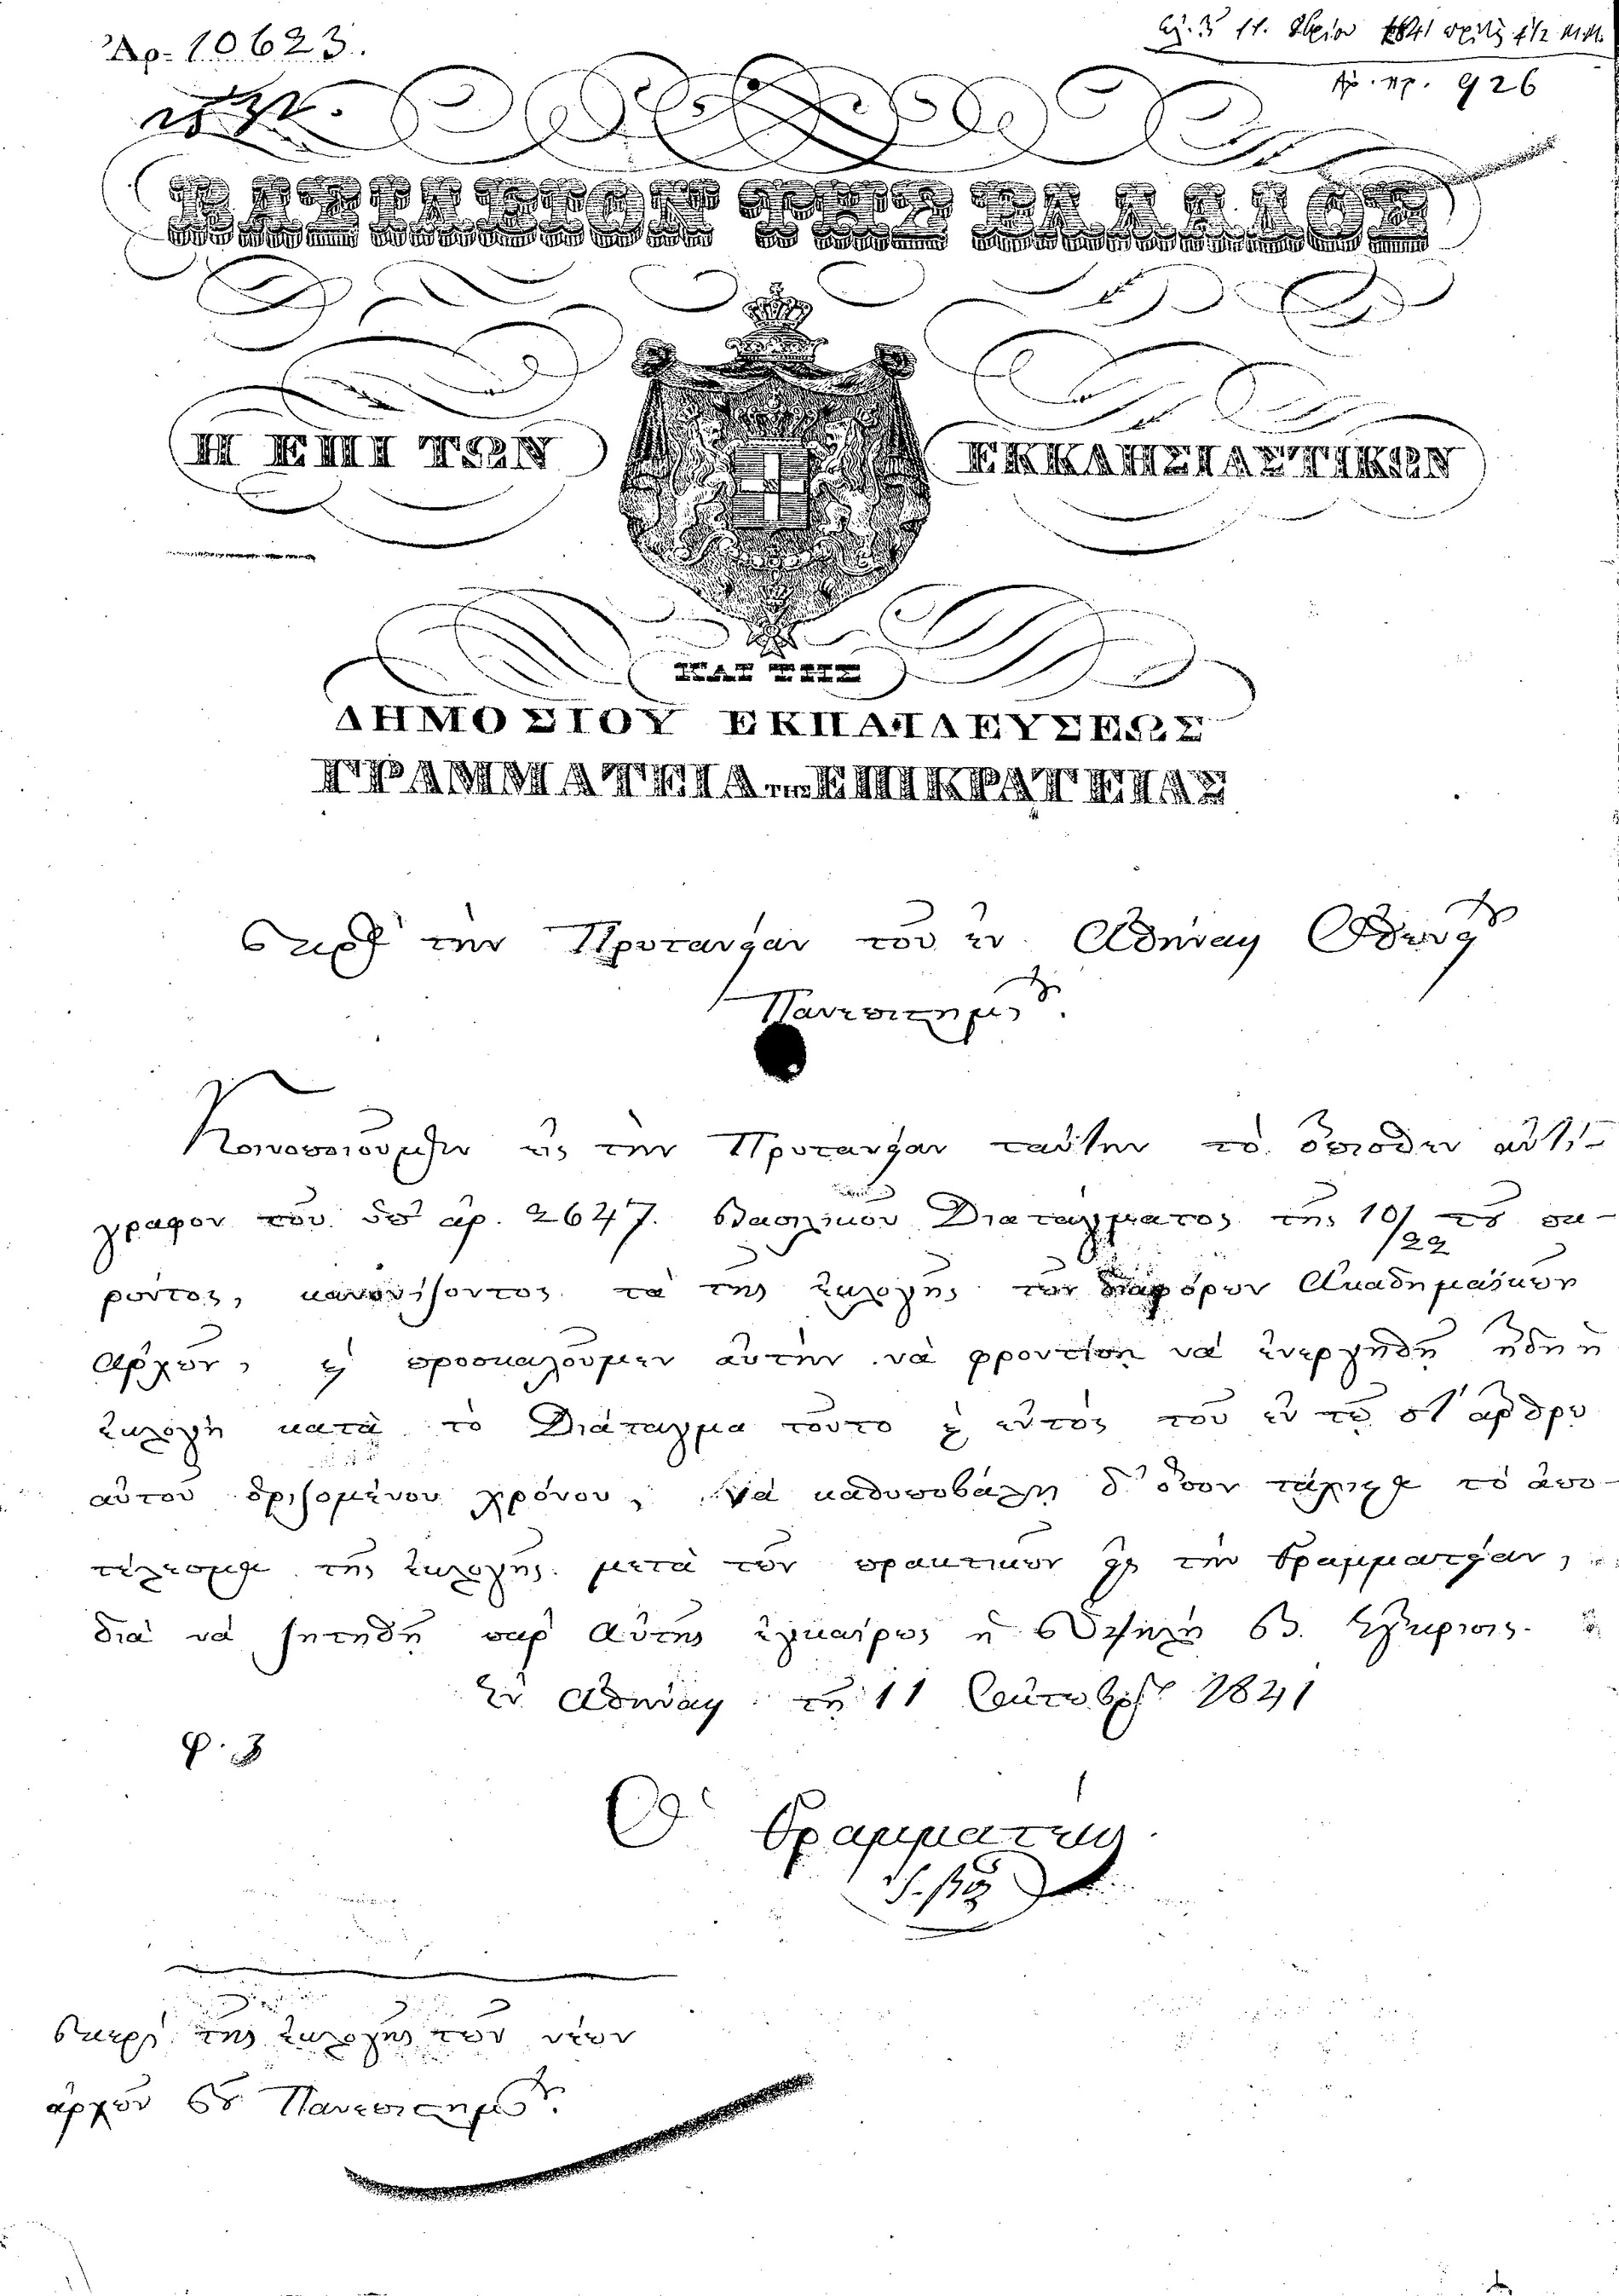 Αρ. 10623.
Ἀρ. πρ. 926
ΒΑΣΙΛΕΙΟΝ ΤΗΣ ΕΛΛΑΔΟΣ
Η ΕΠΙ ΤΩΝ ΕΚΚΛΗΣΙΑΣΤΙΚΩΝ
ΚΑΙ ΤΗΣ
ΔΗΜΟΣΙΟΥ ΕΚΠΑΙΔΕΥΣΕΩΣ
ΓΡΑΜΜΑΤΕΙΑ ΤΗΣ ΕΠΙΚΡΑΤΕΙΑΣ
Πρὸς τὴν Πρυτανείαν τοῦ ἐν Ἀθήναις Ὀθων.
Πανεπιστημίου.
Κοινοποιοῦμεν εἰς τὴν Πρυτανείαν ταύτην τὸ ὄπισθεν ἀντί-
γραφον τοῦ ὑπ' ἀρ. 2647. Βασιλικοῦ Διατάγματος τῆς 10/22 τοῦ πα-
ρόντος, κανονίζοντος τὰ τῆς ἐκλογῆς τῶν διαφόρων Ἀκαδημαϊκῶν
Ἀρχῶν, καὶ προσκαλοῦμεν αὐτὴν νὰ φροντίσῃ νὰ ἐνεργηθῇ ἤδη ἡ
ἐκλογὴ κατὰ τὸ Διάταγμα τοῦτο καὶ ἐντὸς τοῦ ἐν τῷ ἄρθρῳ
αὐτοῦ ὁριζομένου χρόνου, νὰ καθυποβάλῃ δ' ὅσον τάχιστα τὸ ἀπο-
τέλεσμα τῆς ἐκλογῆς μετὰ τῶν πρακτικῶν εἰς τὴν Γραμματείαν,
διὰ νὰ ζητηθῇ παρ' Αὐτῆς ἐγκαίρως ἡ Β. ἔγκρισις.
Ἐν Ἀθήναις τῇ 11 Ὀκτωβρίου 1841
Ὁ Γραμματεὺς
περὶ τῆς ἐκλογῆς τῶν νέων
ἀρχῶν τοῦ Πανεπιστημίου.